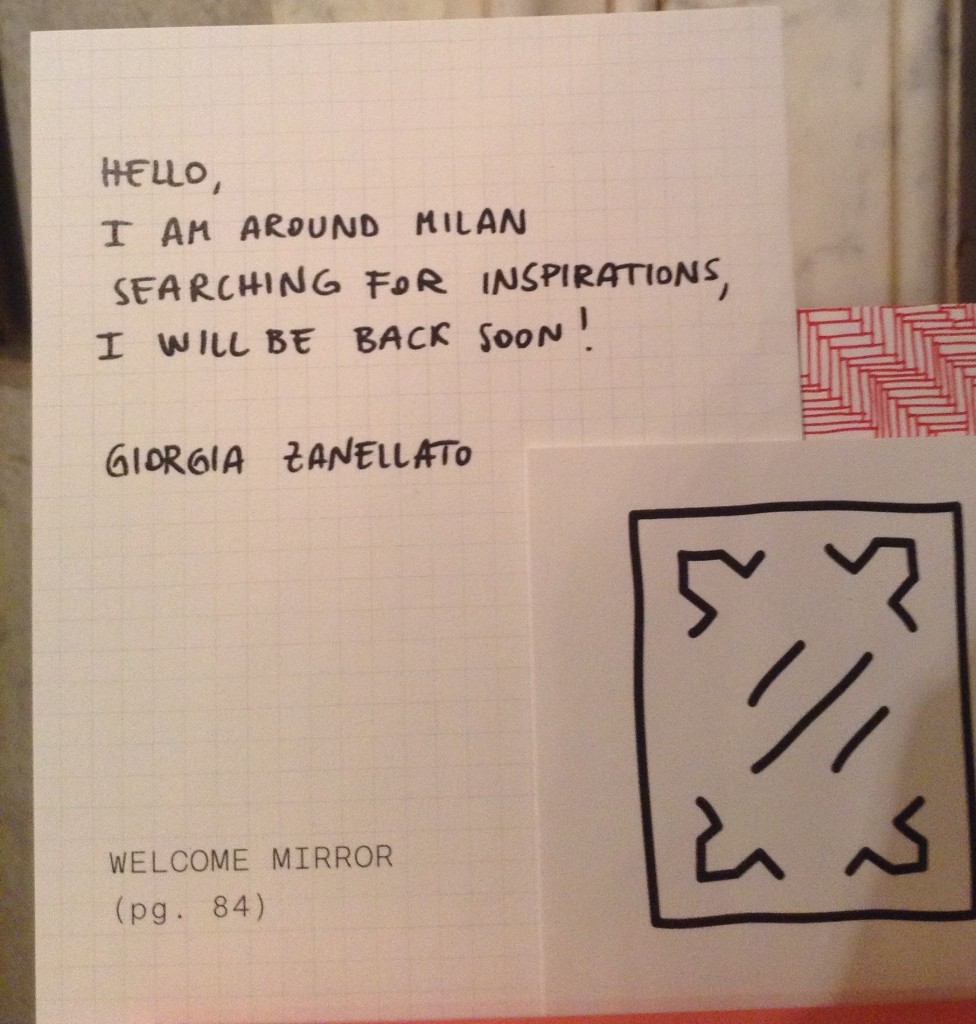 HELLO,
I AM AROUND MILAN
SEARCHING FOR INSPIRATIONS,
I WILL BE BACK SOON!
GIORGIA ZANELLATO
WELCOME MIRROR
(pg. 84)